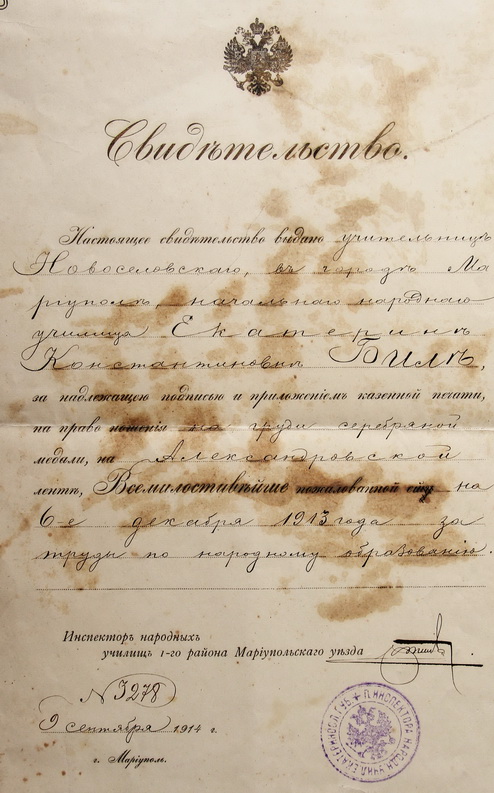 Свидѣтельство.
Настоящее свидѣтельство выдано учительницѣ
Новоселовскаго, въ городѣ Ма
ріуполѣ, начальнаго народнаго
училища Екатеринѣ
Константиновнѣ Билѣ,
за надлежащею подписью и приложеніемъ казенной печати,
на право ношенія на груди серебряной
медали, на Александровской
лентѣ, Всемилостивѣйше пожалованной на
6е декабря 1913 года за
труды по народному образованію.
Инспекторъ народныхъ
училищъ 1-го района Маріупольскаго уѣзда
№ 3278
9 сентября 1914 г.
г. Маріуполь.
ИНСПЕКТОРА НАРОДН. УЧИЛ. ЕКАТЕРИНОСЛ. ГУБ.